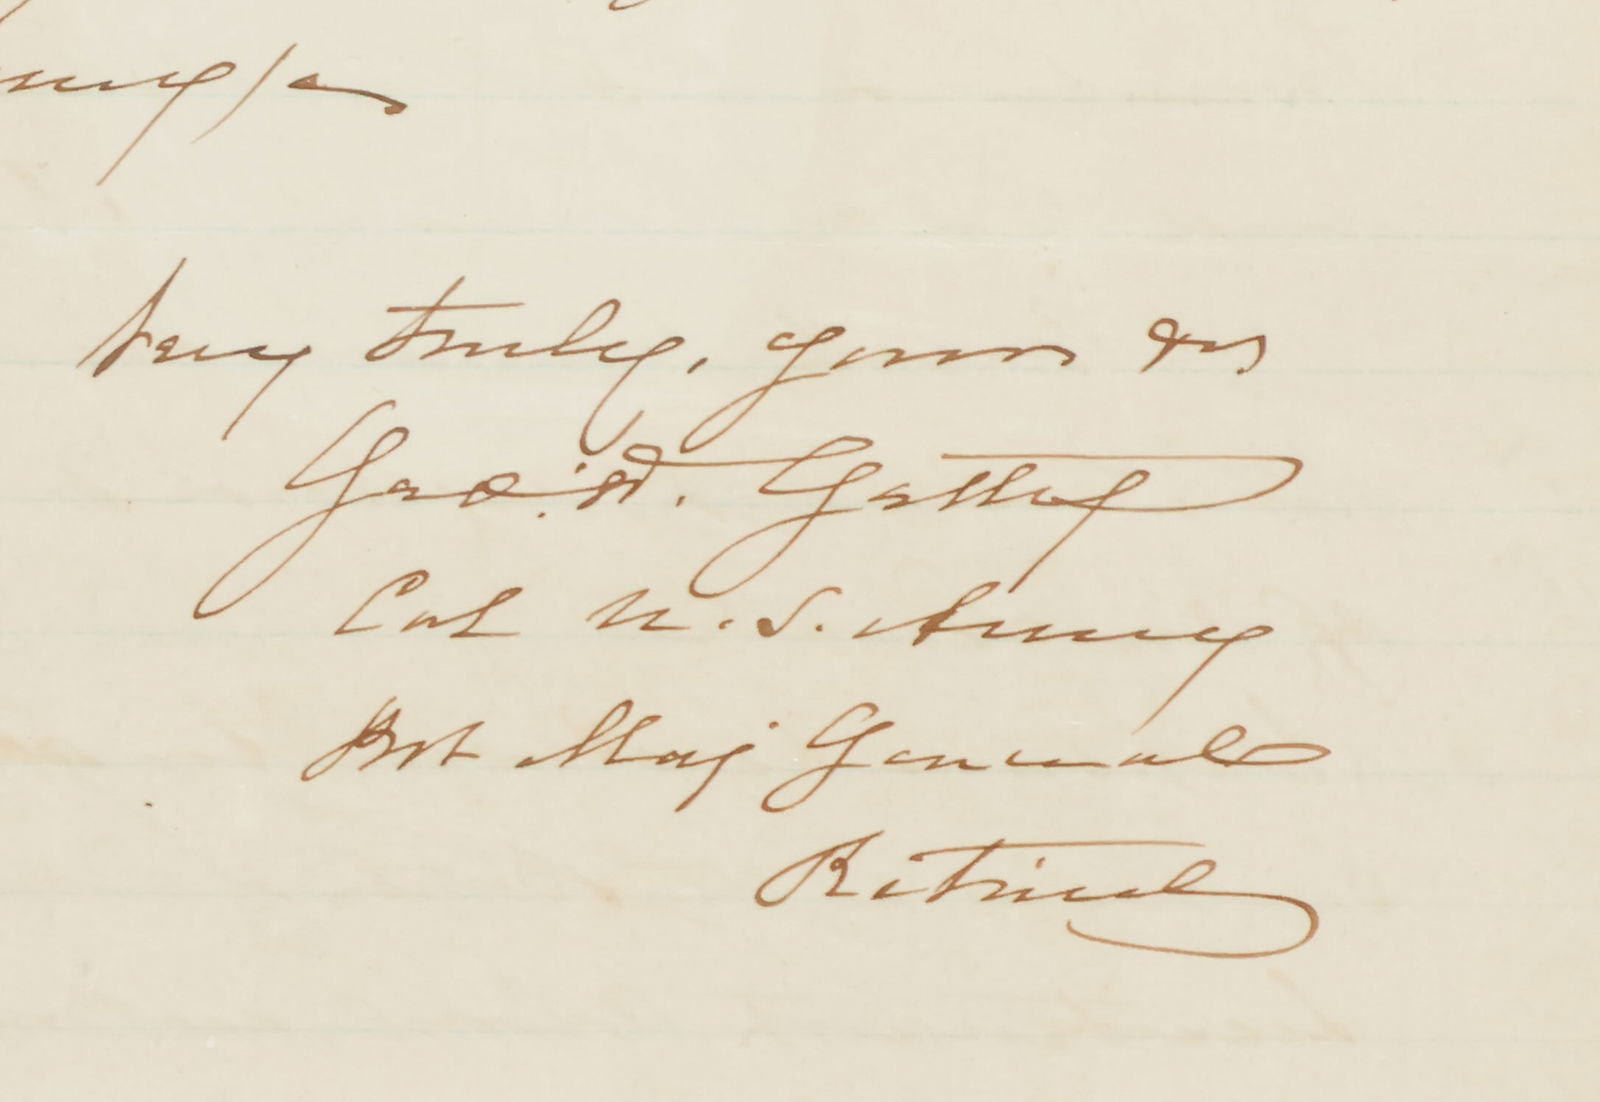 Very truly, yours &c
Geo. W. Getty
Col U. S. Army
Bvt Maj General
Retired